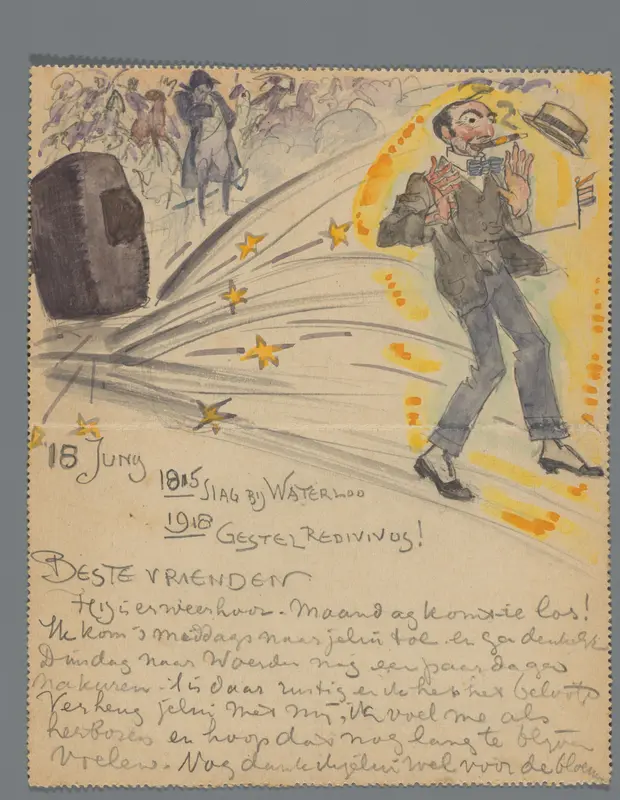 18 Juny
1815 Slag bij Waterloo
1918 Gestel Redivivus!
Beste vrienden
Hij is er weer hoor. Maandag komt-ie los!
Ik kom 's middags naar jelui toe en ga denkelijk
Dinsdag naar Woerden nog een paar dagen
nakuren. 't is daar rustig en ik heb het beloofd
Verheug jelui met mij, ik voel me als
herboren en hoop dat nog lang te blijven
voelen. Nog dank ik jelui wel voor de bloemen